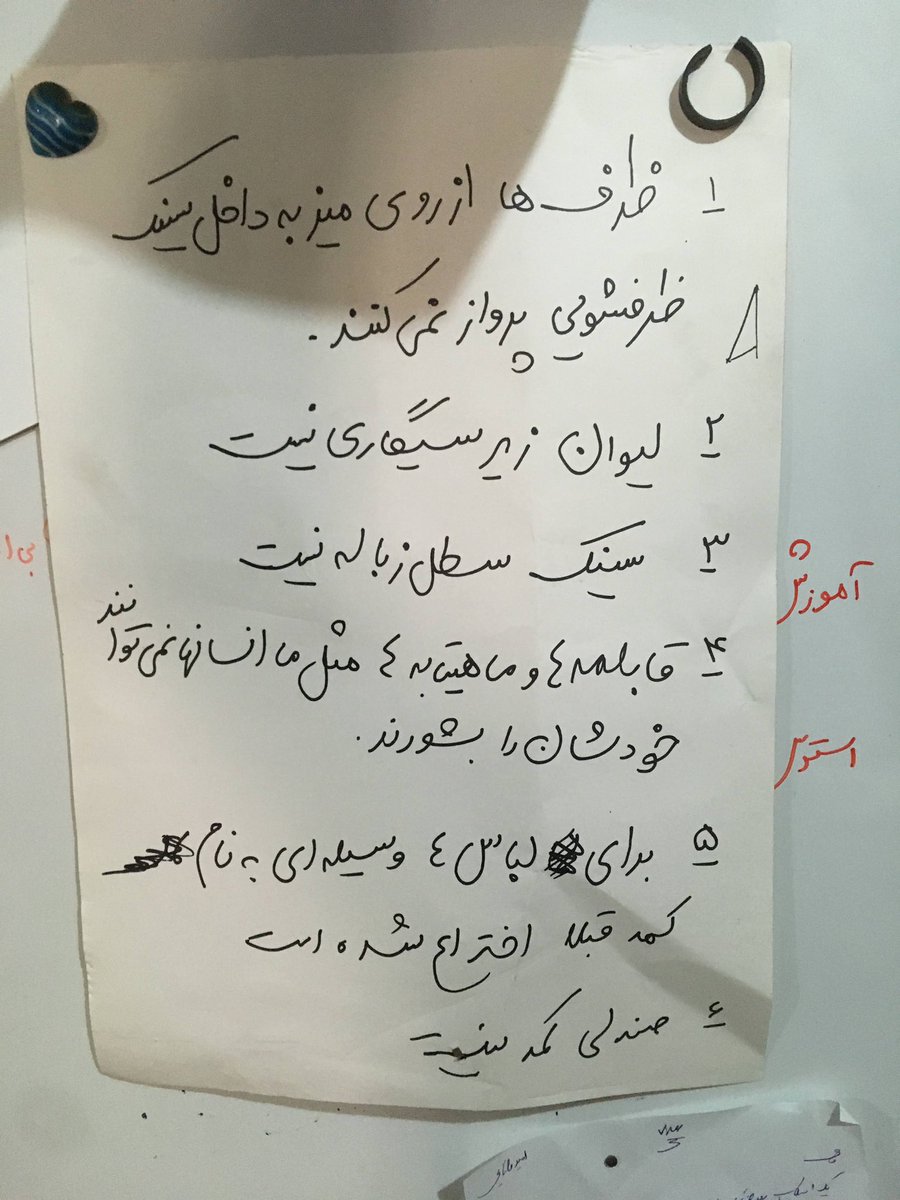 ۱ ظرف ها از روی میز به داخل سینک
ظرفشویی پرواز نمی کنند.
۲ لیوان زیر سیگاری نیست
۳ سینک سطل زباله نیست
۴ قابلمه ها و ماهیتابه ها مثل ما انسانها نمی توانند
خودشان را بشورند.
۵ برای لباس ها وسیله ای به نام
کمد قبلا اختراع شده است
۶ صندلی کمد نیست
آموزش
استرس